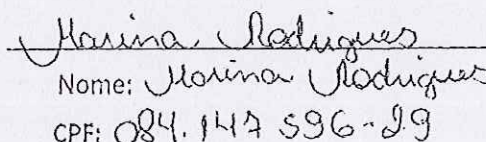 Marina Rodrigues
Nome: Marina Rodrigues
CPF: 084.147 596-29